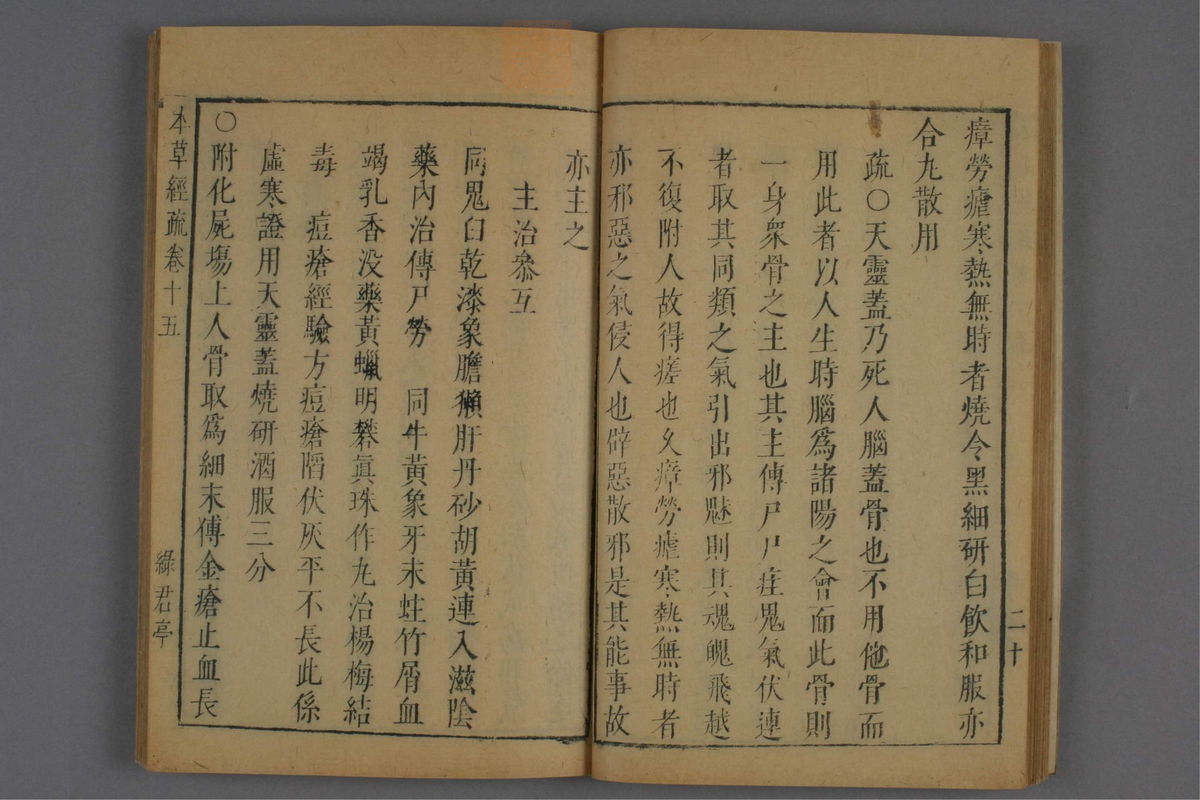 瘴勞瘧寒熱無時者燒令黑細研白飲和服亦
合丸散用
疏○天靈蓋乃死人腦蓋骨也不用他骨而
用此者以人生時腦爲諸陽之會而此骨則
一身衆骨之主也其主傳尸尸疰鬼氣伏連
者取其同類之氣引出邪魅則其魂魄飛越
不復附人故得瘥也久瘴勞瘧寒熱無時者
亦邪惡之氣侵人也辟惡散邪是其能事故
二十
亦主之
主治參互
同鬼臼乾漆象膽獺肝丹砂胡黃連入滋陰
藥內治傳尸勞　同牛黃象牙末蛀竹屑血
竭乳香没藥黃蠟明礬眞珠作丸治楊梅結
毒　痘瘡經驗方痘瘡陷伏灰平不長此係
虛寒證用天靈蓋燒研酒服三分
○附化屍塲上人骨取爲細末傅金瘡止血長
本草經疏卷十五
綠君亭